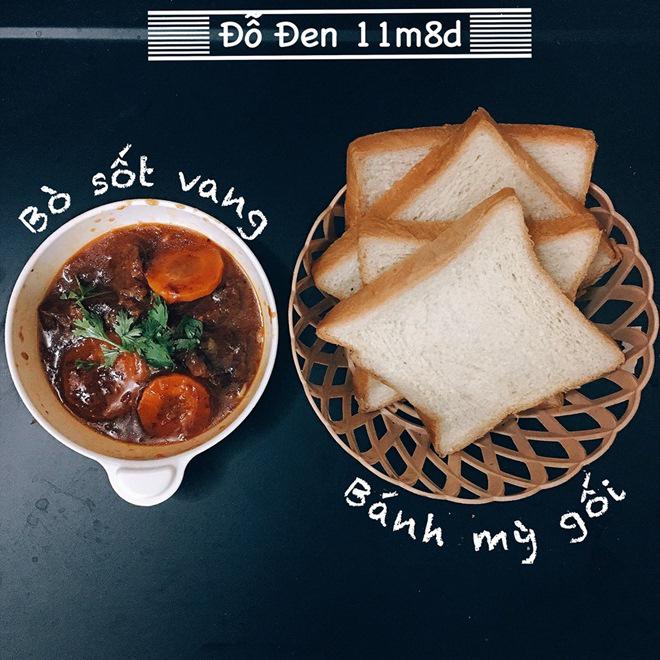 Đỗ Đen 11m8d
Bò sốt vang
Bánh mỳ gối